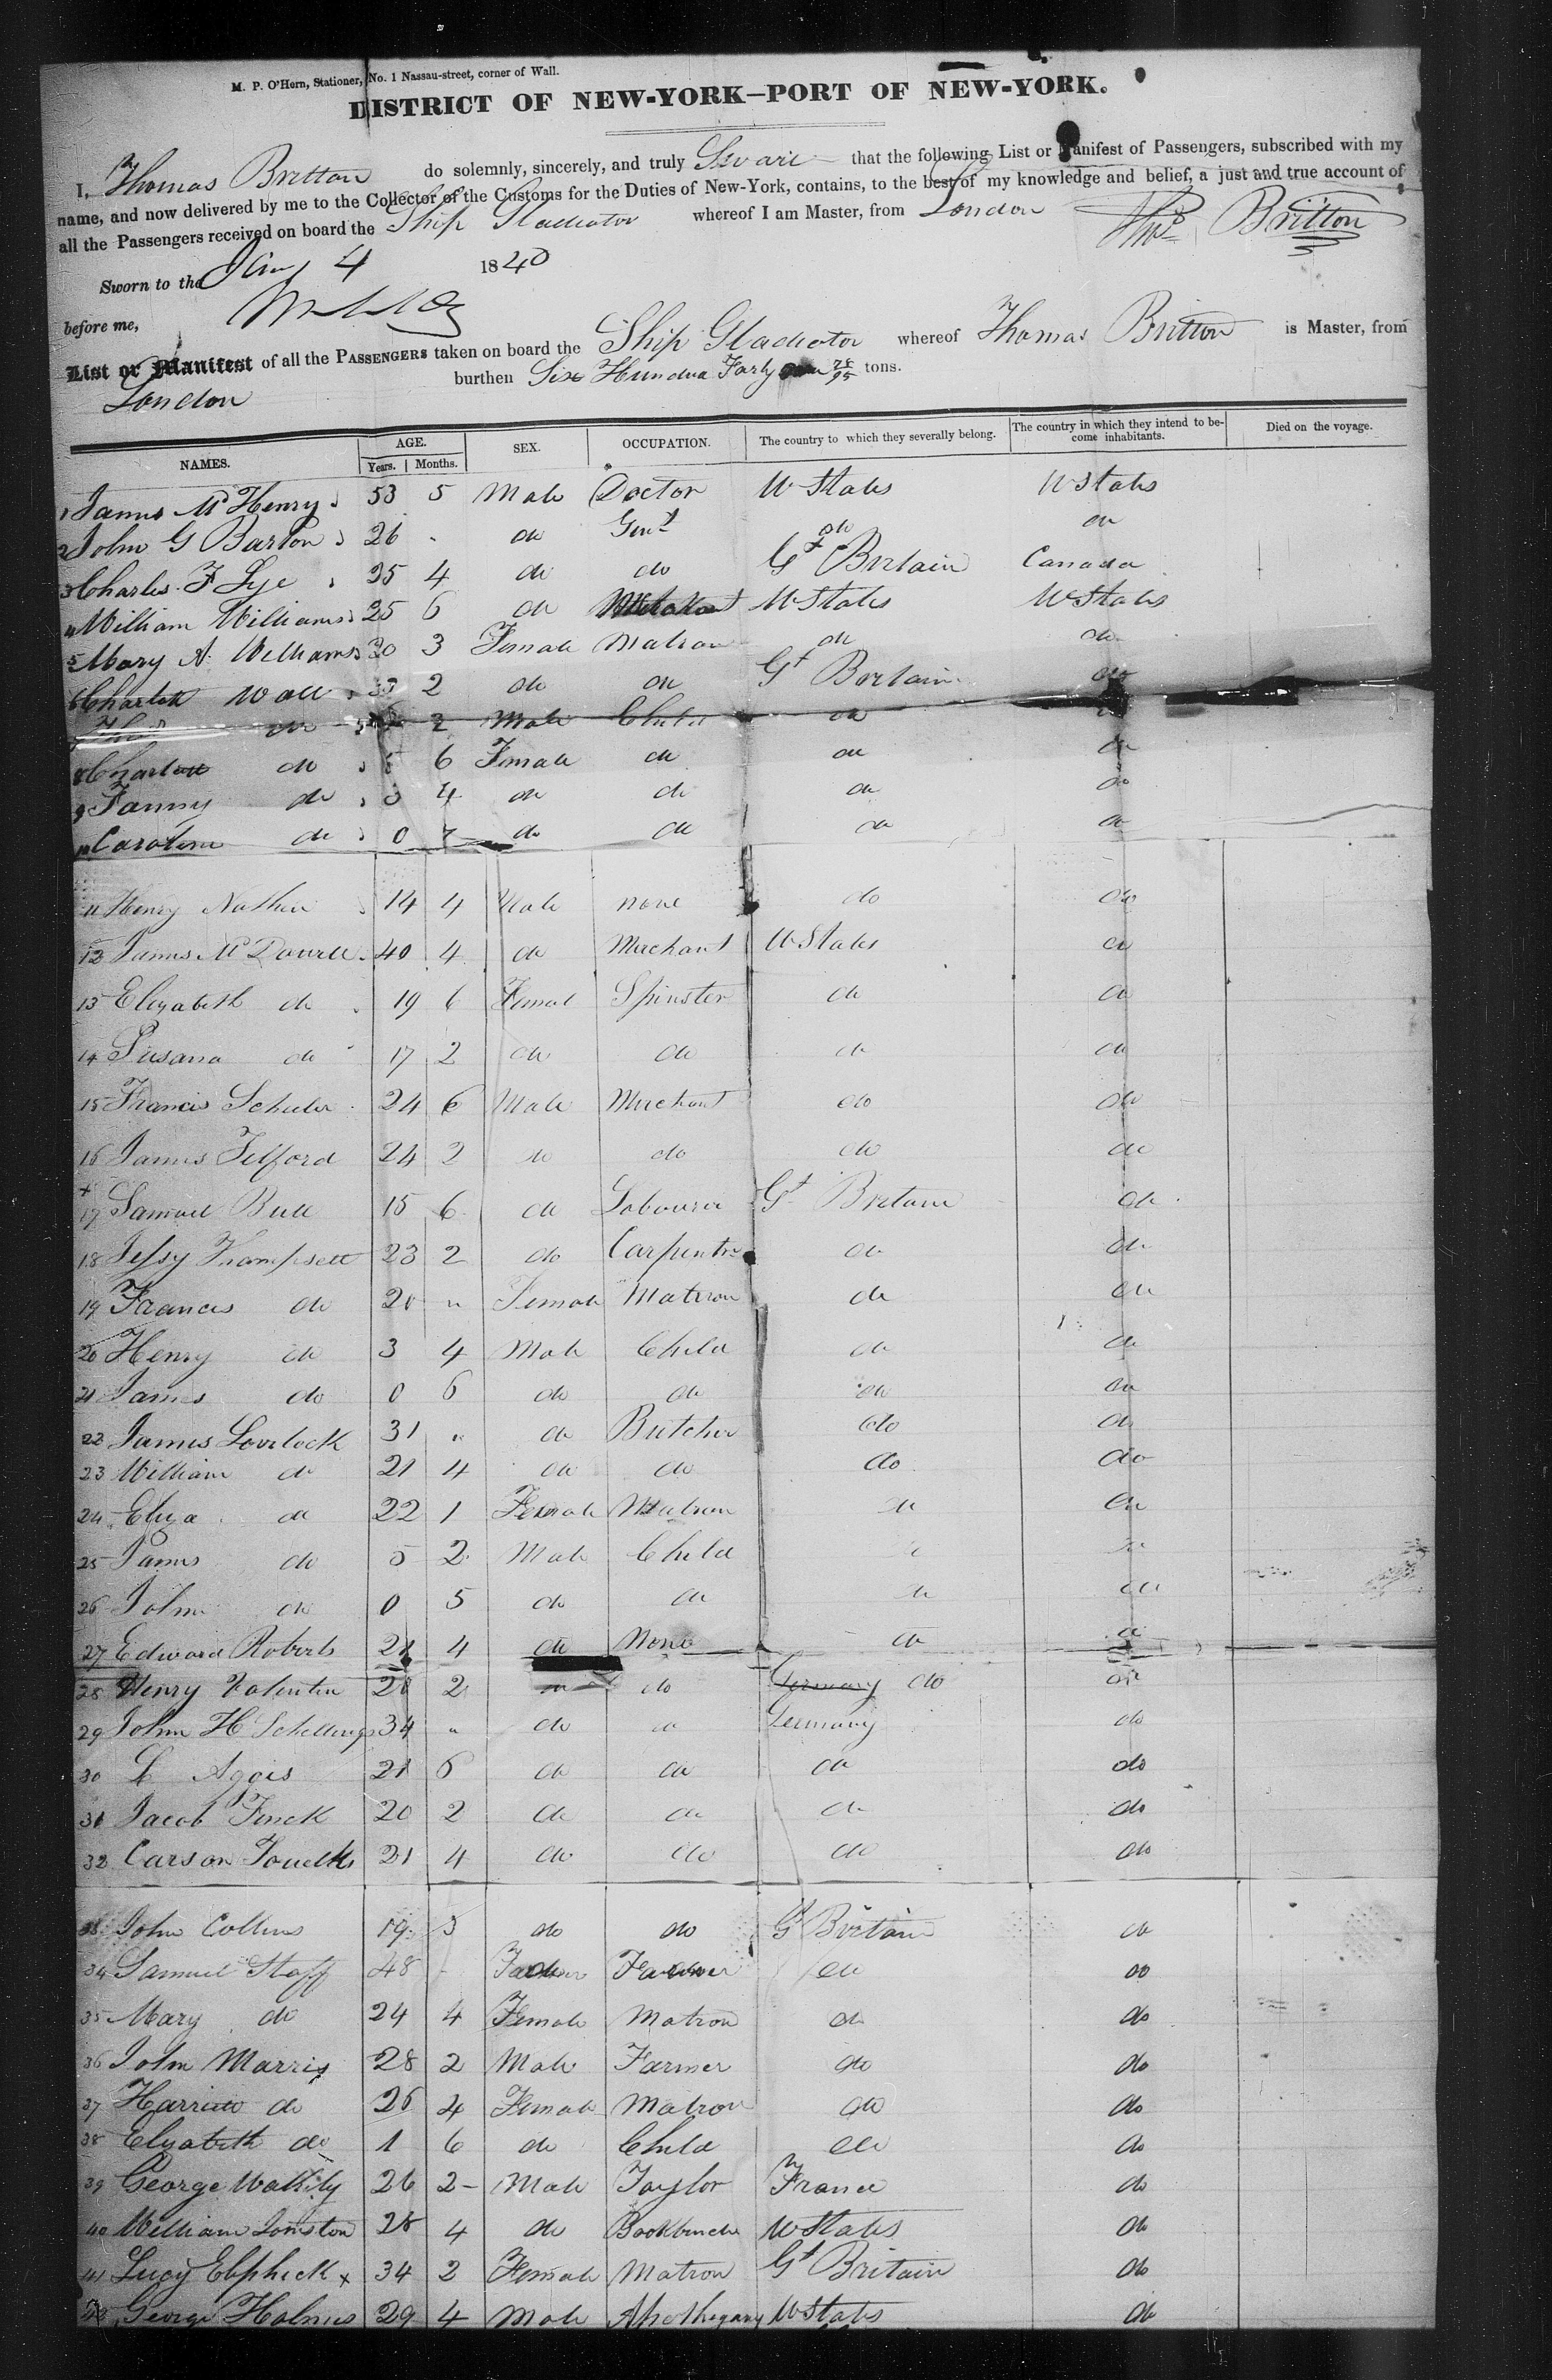 M. P. O'Hern, Stationer, No. 1 Nassau-street, corner of Wall.
DISTRICT OF NEW-YORK—PORT OF NEW-YORK.
I, Thomas Britton do solemnly, sincerely, and truly Swair that the following List or Manifest of Passengers, subscribed with my
name, and now delivered by me to the Collector of the Customs for the Duties of New-York, contains, to the best of my knowledge and belief, a just and true account of
all the Passengers received on board the Ship Gladiator whereof I am Master, from London
Thos Britton
Sworn to the Jany 4 1840
before me,
List or Manifest of all the PASSENGERS taken on board the Ship Gladiator whereof Thomas Britton is Master, from
London burthen Six Hundred Forty 78/95 tons.
NAMES. AGE. SEX. OCCUPATION. The country to which they severally belong. The country in which they intend to become inhabitants. Died on the voyage.
Years. Months.
1 James McHenry 53 5 Male Doctor U States U States
2 John G Barton 26 - do Gent do do
3 Charles F Lye 25 4 do do Gt Britain Canada
4 William Williams 25 6 do U States U States
5 Mary A Williams 30 3 Female Matron do do
6 Charlotte Wall 2 do do Gt Britain do
do 2 Male Child do
8 Charlotte do 6 Female do do do
9 Fanny do 3 4 do do do do
10 Caroline do 0 7 do do do do
11 Henry Nathan 14 4 Male none do do
12 James McDourle 40 4 do Merchant U States do
13 Elizabeth do 19 6 Female Spinster do do
14 Susana do 17 2 do do do do
15 Francis Schuler 24 6 Male Merchant do do
16 James Telford 24 2 do do do do
17 Samuel Bull 15 6 do Labourer Gt Britain do
18 Jessy Trampsett 23 2 do Carpenter do do
19 Frances do 20 " Female Matron do do
20 Henry do 3 4 Male Child do do
21 James do 0 6 do do do do
22 James Lovelock 31 " do Butcher do do
23 William do 21 4 do do do do
24 Eliza do 22 1 Female Matron do do
25 James do 5 2 Male Child do do
26 John do 0 5 do do do do
27 Edward Roberts 21 4 do None do do
28 Henry Valentin 28 2 do do Germany do do
29 John H Schellings 34 " do do Germany do
30 L Agois 21 6 do do do do
31 Jacob Finck 20 2 do do do do
32 Carson Touelks 21 4 do do do do
33 John Collins 19 3 do do Gt Britain do
34 Samuel Stoff 48 - do Farmer do do
35 Mary do 24 4 Female Matron do do
36 John Marris 28 2 Male Farmer do do
37 Harriett do 26 4 Female Matron do do
38 Elizabeth do 1 6 do Child do do
39 George Wakily 26 2 Male Taylor France do
40 William Jonston 28 4 do Bookbinder U States do
41 Lucy Elpheck x 34 2 Female Matron Gt Britain do
42 George Holmes 29 4 Male Apothegary U States do